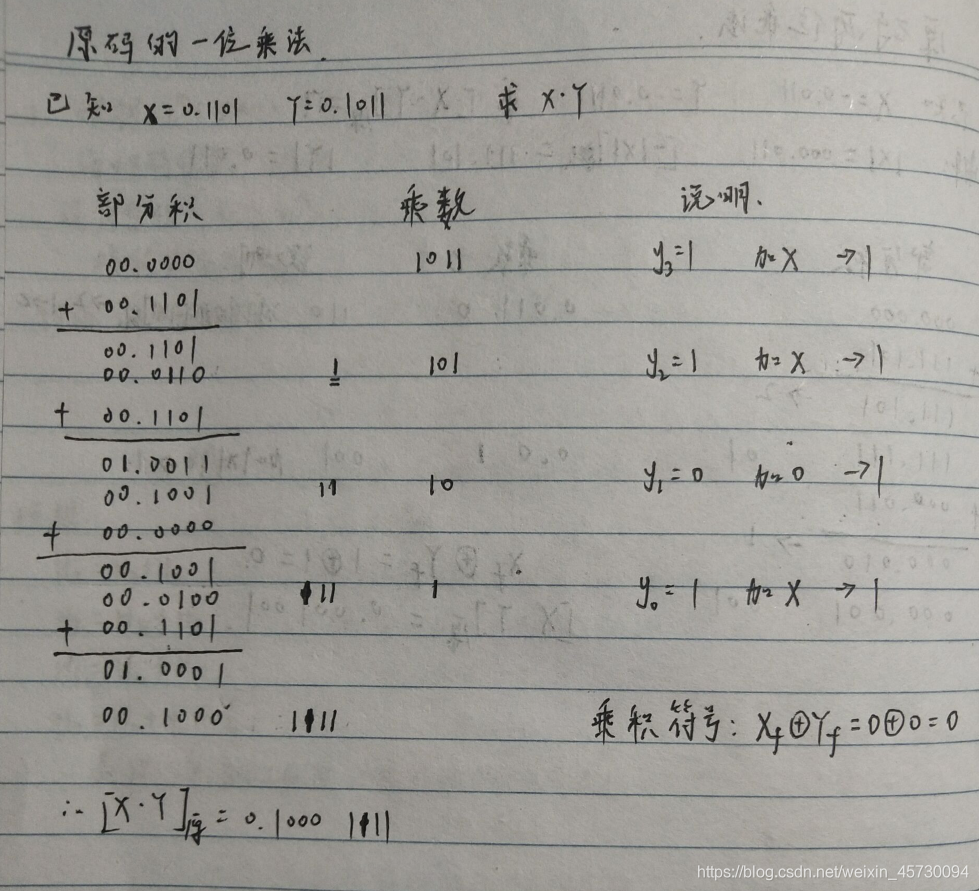 原码的一位乘法.
已知 X=0.1101 Y=0.1011 求 X·Y
部分积 乘数 说明.
00.0000 1011 y₃=1 加X →1
+ 00.1101
00.1101
00.0110 1 101 y₂=1 加X →1
+ 00.1101
01.0011
00.1001 11 10 y₁=0 加0 →1
+ 00.0000
00.1001
00.0100 111 1 y₀=1 加X →1
+ 00.1101
01.0001
00.1000 1111 乘积符号: Xf⊕Yf=0⊕0=0
∴ [X·Y]原 = 0.1000 1111
https://blog.csdn.net/weixin_45730094